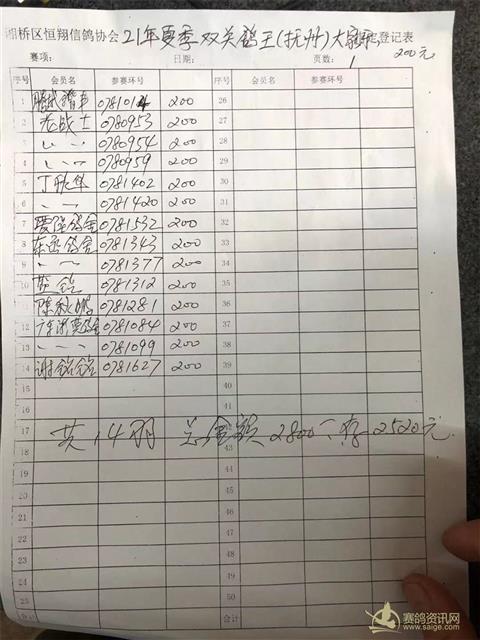 湘桥区恒翔信鸽协会 21年夏季双关鸽王(抚州)大家乐 指定登记表
赛项： 日期： 页数：1 200元
序号 会员名 参赛环号 序号 会员名 参赛环号
1 0781014 200 26
2 老战士 0780953 200 27
3 〃 〃 0780954 200 28
4 〃 〃 0780959 200 29
5 0781402 200 30
6 〃 〃 0781420 200 31
7 鸽舍 0781532 200 32
8 东函鸽舍 0781343 200 33
9 〃 〃 0781377 200 34
10 0781312 200 35
11 陈秋鹏 0781281 200 36
12 0781084 200 37
13 〃 〃 0781099 200 38
14 谢铭铭 0781627 200 39
15 40
16 41
17 42
共14羽 总金额2800 存2520元
18 43
19 44
20 45
21 46
22 47
23 48
24 49
25 50
合计
赛鸽资讯网
www.saige.com